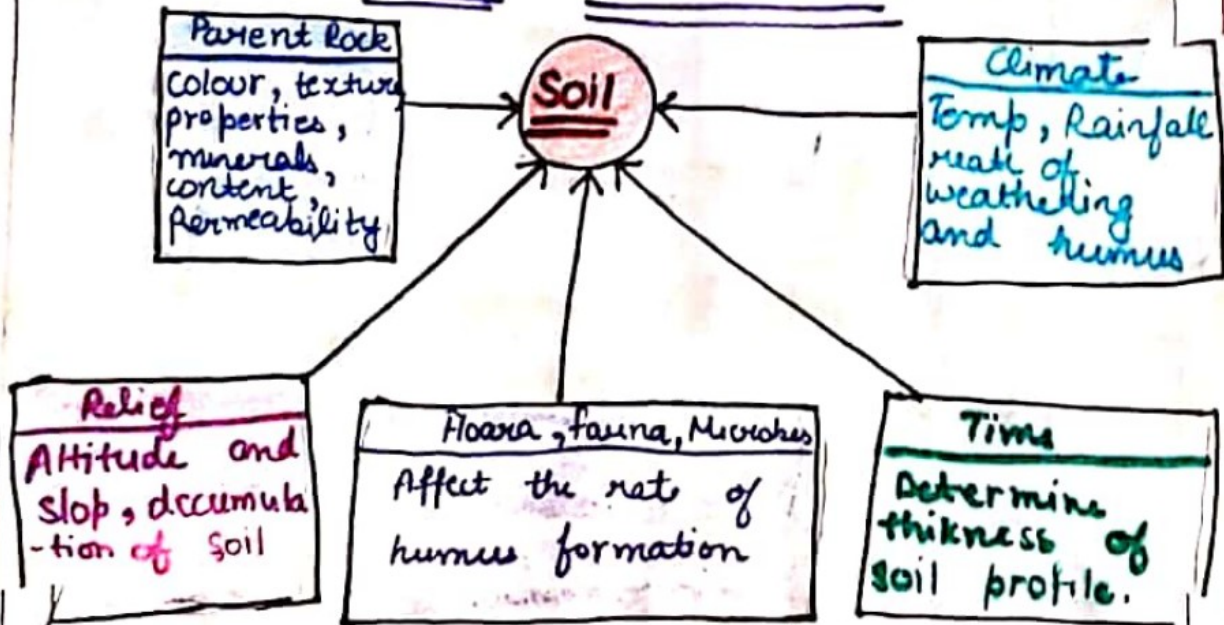 Parent Rock
colour, texture
properties,
minerals,
content,
Permeability
Soil
Climate
Temp, Rainfall
reate of
weatheling
and humus
Relief
Attitude and
slop, accumula
-tion of soil
Floara, fauna, Microbes
Affect the rate of
humus formation
Time
Determine
thikness of
soil profile.